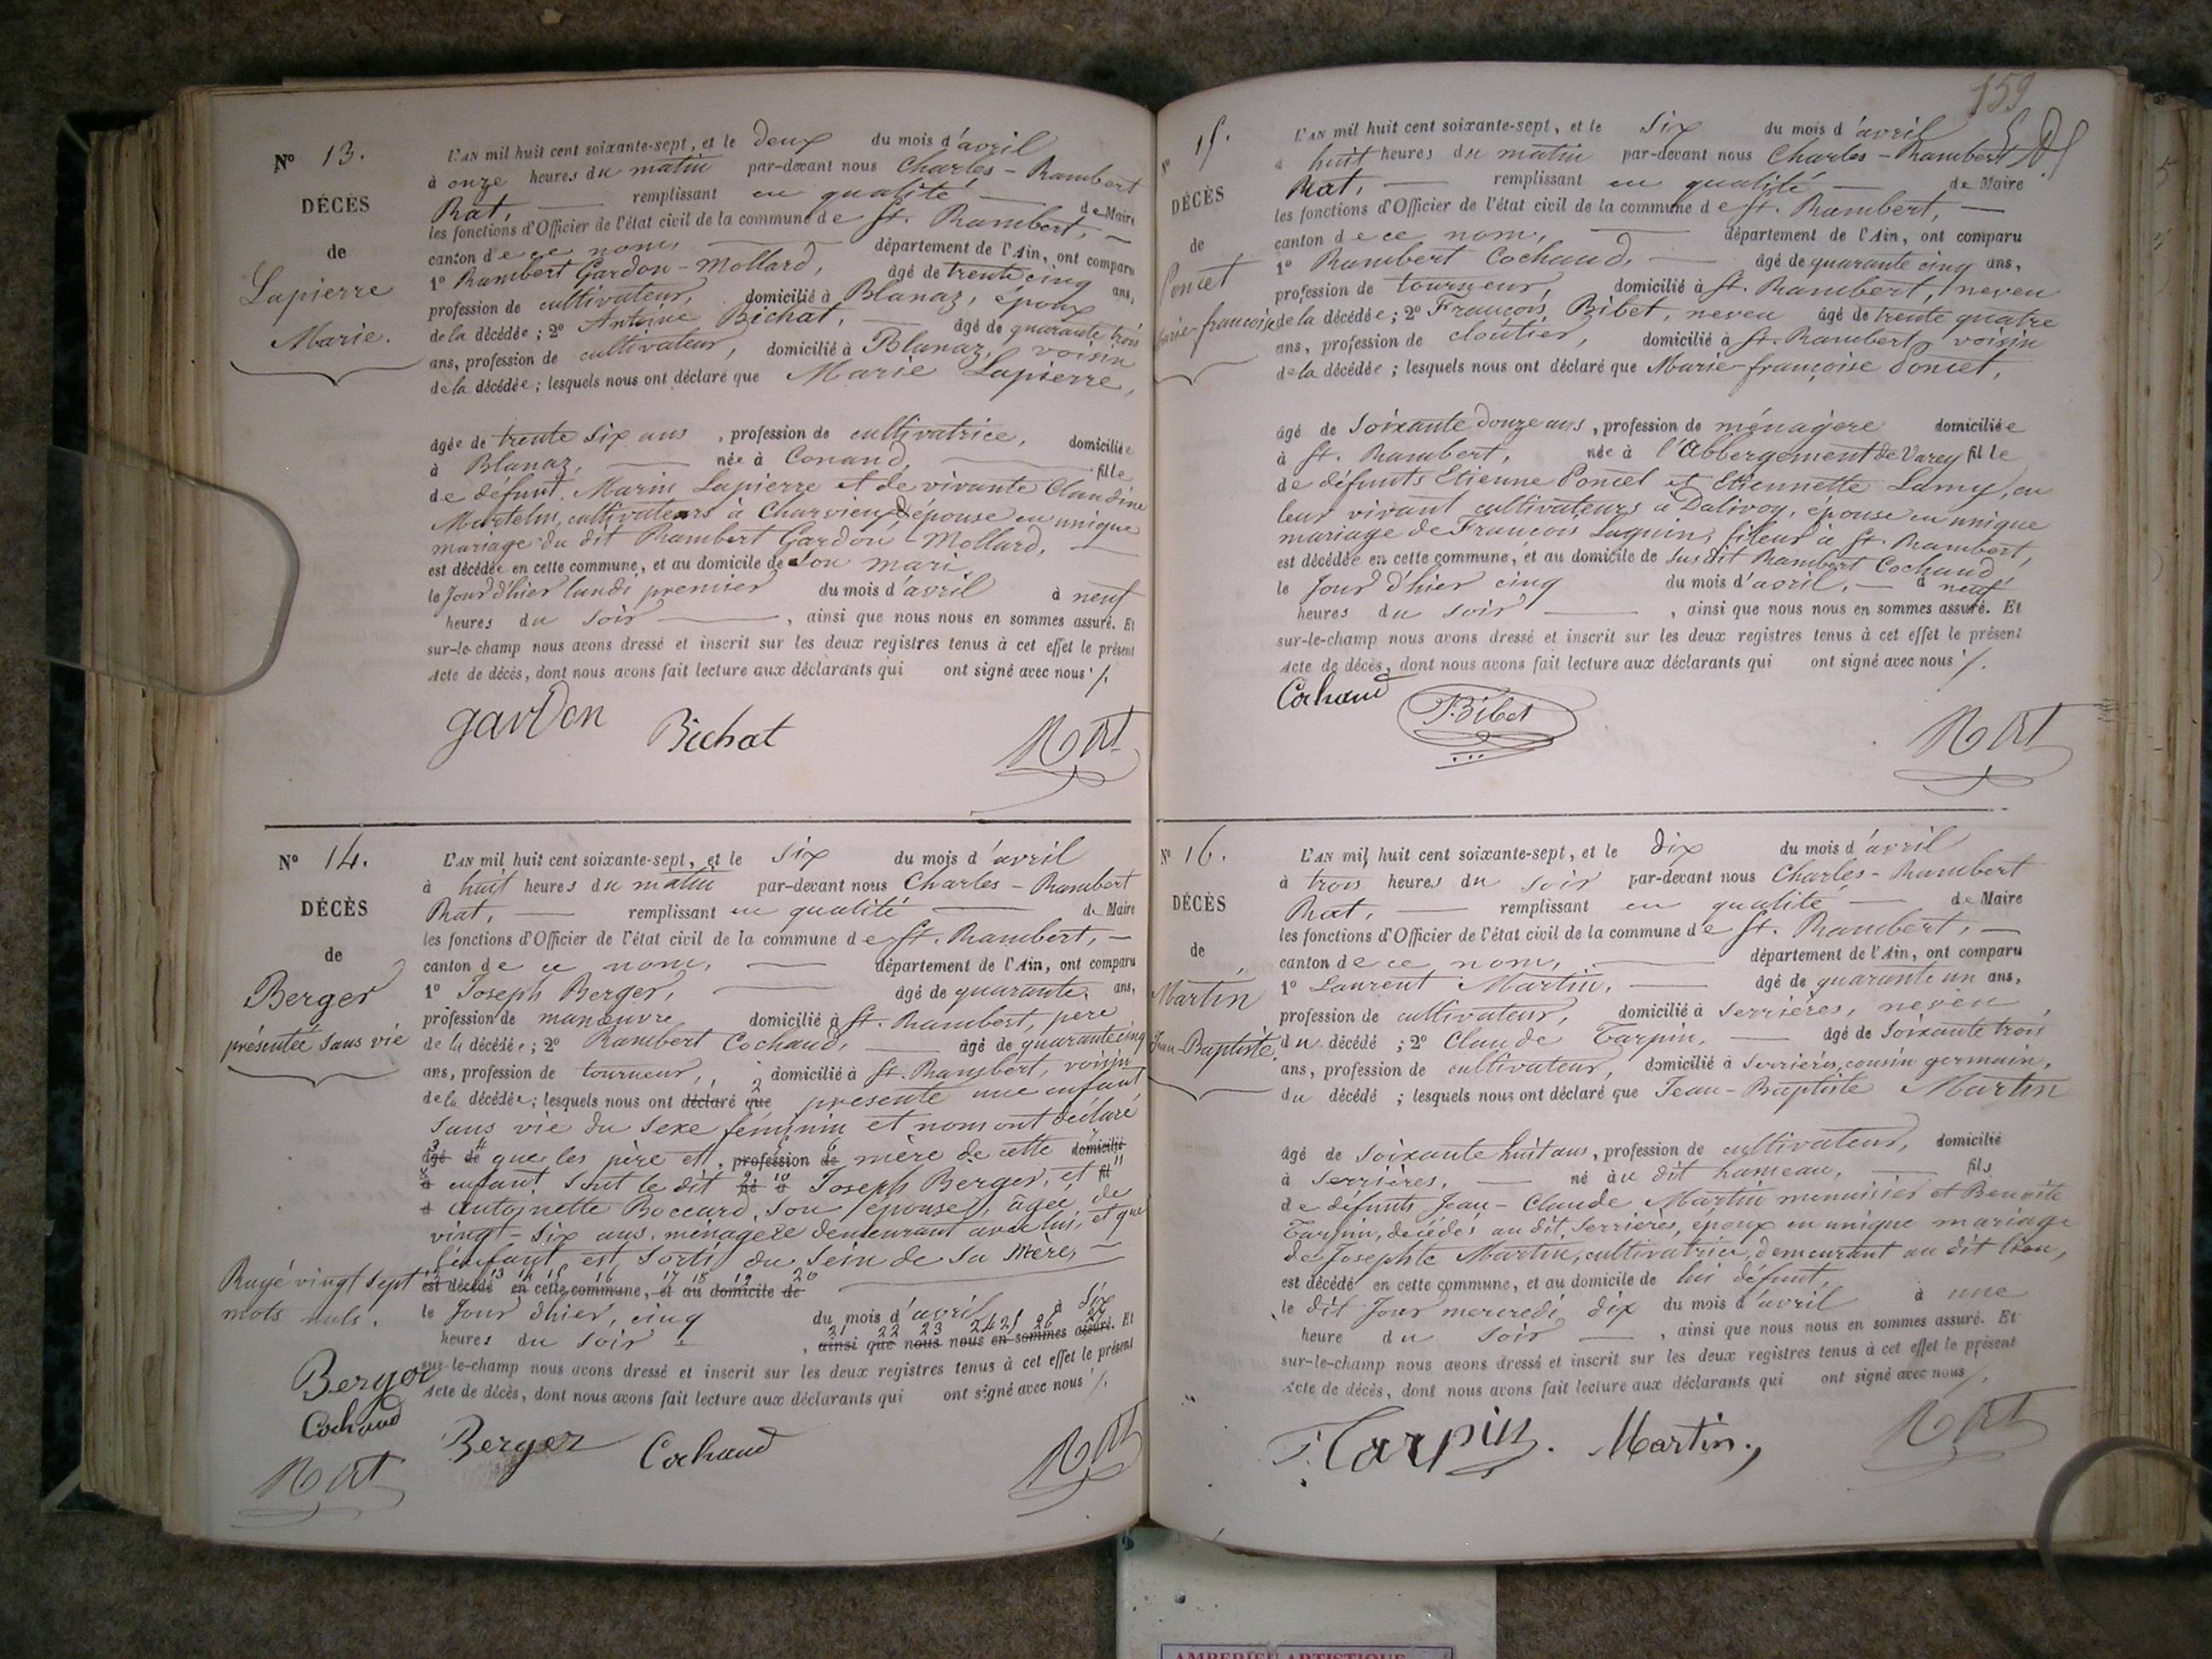 N° 13.
DÉCÈS
de
Lapierre
Marie.
L'AN mil huit cent soixante-sept, et le deux du mois d'avril
à onze heures du matin par-devant nous Charles-Rambert
Rat, remplissant en qualité de Maire
les fonctions d'Officier de l'état civil de la commune de St. Rambert,
canton de ce nom, département de l'Ain, ont comparu
1° Rambert Gardon-Mollard, âgé de trente cinq ans,
profession de cultivateur, domicilié à Blanaz, époux
de la décédée; 2° Antoine Bichat, âgé de quarante trois
ans, profession de cultivateur, domicilié à Blanaz, voisin
de la décédée; lesquels nous ont déclaré que Marie Lapierre,
âgée de trente six ans, profession de cultivatrice, domiciliée
à Blanaz, née à Conand, fille
de défunt Marin Lapierre et de vivante Claudine
Martelin, cultivateurs à Charvieux, épouse en unique
mariage du dit Rambert Gardon-Mollard,
est décédée en cette commune, et au domicile de son mari
le jour d'hier lundi premier du mois d'avril à neuf
heures du soir, ainsi que nous nous en sommes assuré. Et
sur-le-champ nous avons dressé et inscrit sur les deux registres tenus à cet effet le présent
Acte de décès, dont nous avons fait lecture aux déclarants qui ont signé avec nous ./.
gardon Bichat Rat
N° 14.
DÉCÈS
de
Berger
présentée sans vie
L'AN mil huit cent soixante-sept, et le six du mois d'avril
à huit heures du matin par-devant nous Charles-Rambert
Rat, remplissant en qualité de Maire
les fonctions d'Officier de l'état civil de la commune de St. Rambert,
canton de ce nom, département de l'Ain, ont comparu
1° Joseph Berger, âgé de quarante ans,
profession de manœuvre domicilié à St. Rambert, père
de la décédée; 2° Rambert Cochaud, âgé de quarante cinq
ans, profession de tourneur, domicilié à St. Rambert, voisin
de la décédée; lesquels nous ont déclaré que présenté une enfant
sans vie du sexe féminin et nous ont déclaré
âgé de que les père et profession de mère de cette domicilié
à enfant sont le dit né à Joseph Berger, et fil
d Antoinette Boccard son épouse, âgée de
vingt-six ans, ménagère demeurant avec lui, et que
l'enfant est sorti du sein de sa mère,
est décédé en cette commune, et au domicile de
le jour d'hier, cinq du mois d'avril à six
heures du soir, ainsi que nous nous en sommes assuré. Et
sur-le-champ nous avons dressé et inscrit sur les deux registres tenus à cet effet le présent
Acte de décès, dont nous avons fait lecture aux déclarants qui ont signé avec nous ./.
Rayé vingt sept
mots nuls.
Berger
Cochaud
Rat
Berger Cochaud Rat
159
N° 15.
DÉCÈS
de
Poncet
Marie-françoise
L'AN mil huit cent soixante-sept, et le six du mois d'avril
à huit heures du matin par-devant nous Charles-Rambert
Rat, remplissant en qualité de Maire
les fonctions d'Officier de l'état civil de la commune de St. Rambert,
canton de ce nom, département de l'Ain, ont comparu
1° Rambert Cochaud, âgé de quarante cinq ans,
profession de tourneur, domicilié à St. Rambert, neveu
de la décédée; 2° François Bibet, neveu âgé de trente quatre
ans, profession de cloutier, domicilié à St. Rambert, voisin
de la décédée; lesquels nous ont déclaré que Marie-françoise Poncet,
âgé de soixante douze ans, profession de ménagère domiciliée
à St. Rambert, née à l'Abbergement de Varey fille
de défunts Etienne Poncet et Etiennette Lamy, en
leur vivant cultivateurs à Dalivoy, épouse en unique
mariage de François Laguin, fileur à St. Rambert,
est décédée en cette commune, et au domicile de susdit Rambert Cochaud
le jour d'hier cinq du mois d'avril, à neuf
heures du soir, ainsi que nous nous en sommes assuré. Et
sur-le-champ nous avons dressé et inscrit sur les deux registres tenus à cet effet le présent
Acte de décès, dont nous avons fait lecture aux déclarants qui ont signé avec nous ./.
Cochaud F. Bibet Rat
N° 16.
DÉCÈS
de
Martin
Jean-Baptiste
L'AN mil huit cent soixante-sept, et le dix du mois d'avril
à trois heures du soir par-devant nous Charles-Rambert
Rat, remplissant en qualité de Maire
les fonctions d'Officier de l'état civil de la commune de St. Rambert,
canton de ce nom, département de l'Ain, ont comparu
1° Laurent Martin, âgé de quarante un ans,
profession de cultivateur, domicilié à Serrières, neveu
du décédé; 2° Claude Tarpin, âgé de soixante trois
ans, profession de cultivateur, domicilié à Serrières, cousin germain,
du décédé; lesquels nous ont déclaré que Jean-Baptiste Martin
âgé de soixante huit ans, profession de cultivateur, domicilié
à Serrières, né au dit hameau, fils
de défunts Jean-Claude Martin menuisier et Benoite
Tarpin, décédés au dit Serrières, époux en unique mariage
de Josephte Martin, cultivatrice, demeurant au dit lieu,
est décédé en cette commune, et au domicile de lui défunt,
le dit jour mercredi dix du mois d'avril à une
heure du soir, ainsi que nous nous en sommes assuré. Et
sur-le-champ nous avons dressé et inscrit sur les deux registres tenus à cet effet le présent
Acte de décès, dont nous avons fait lecture aux déclarants qui ont signé avec nous ./.
Tarpin. Martin. Rat
AMBERIEU ARTISTIQUE